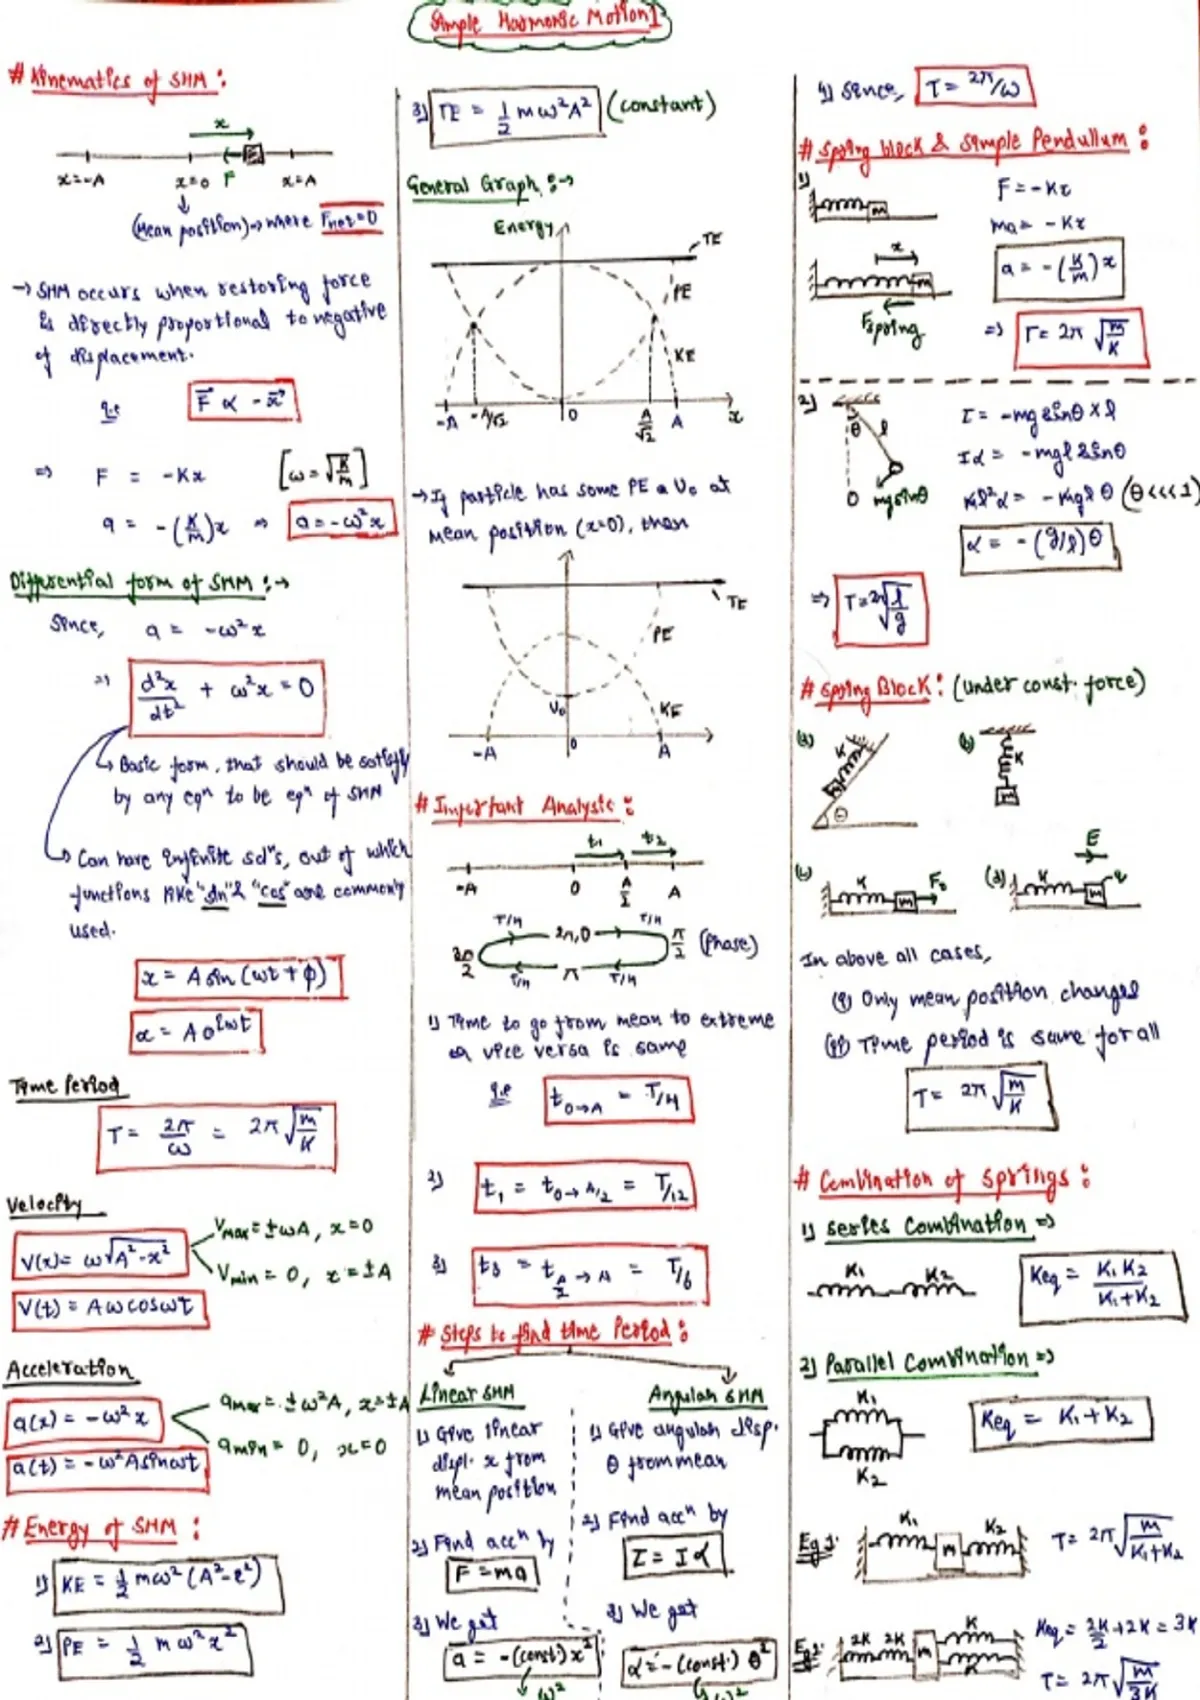 Simple Harmonic Motion 1
# Kinematics of SHM :
x
x=-A x=0 F x=A
(Mean position)→ where Fnet=0
→ SHM occurs when restoring force
is directly proportional to negative
of displacement.
i.e F⃗ ∝ -x⃗
⇒ F = -Kx [ω = √K/m]
a = -(K/m)x ⇒ a = -ω²x
Differential form of SHM :→
Since, a = -ω²x
⇒ d²x/dt² + ω²x = 0
↳ Basic form, that should be satisfy
by any eqⁿ to be eqⁿ of SHM
↳ Can have infinite solⁿs, out of which
functions like "sin" & "cos" are commonly
used.
x = A sin (ωt + φ)
Time Period
T = 2π/ω = 2π √m/K
Velocity
V(x) = ω√A²-x²
Vmax = ±ωA, x=0
Vmin = 0, x = ±A
V(t) = Aω cosωt
Acceleration
a(x) = -ω²x
amax = ±ω²A, x=±A
amin = 0, x=0
a(t) = -ω²A sinωt
# Energy of SHM :
1) KE = 1/2 mω² (A²-x²)
2) PE = 1/2 mω²x²
3) TE = 1/2 mω²A² (constant)
General Graph :→
Energy
TE
PE
KE
-A -A/√2 0 A/√2 A x
→ If particle has some PE = U₀ at
mean position (x=0), then
TE
PE
U₀ KE
-A 0 A
# Important Analysis :
t₁ t₂
-A 0 A/2 A
T/4 2π,0 T/4
3π/2 π/2 (Phase)
T/4 π T/4
1) Time to go from mean to extreme
or vice versa is same
i.e t0→A = T/4
2) t₁ = t0→A/2 = T/12
3) = tA/2→A = T/6
# Steps to find time Period :
Linear SHM
1) Give linear
displ. x from
mean position
2) Find accⁿ by
F = ma
3) We get
a = -(const)x
ω²
Angular SHM
1) Give angular disp.
θ from mean
2) Find accⁿ by
τ = Iα
3) We get
α = -(const.) θ
ω²
4) Since, T = 2π/ω
# Spring block & Simple Pendullum :
1) m
F = -Kx
ma = -Kx
x
m
Fspring
a = -(K/m)x
⇒ T = 2π √m/K
2) θ l
0 mgsinθ
τ = -mg sinθ × l
Iα = -mgl sinθ
ml²α = -mgl θ (θ<<<1)
α = -(g/l)θ
⇒ T = 2π√l/g
# Spring Block : (under const. force)
(a) K θ
(b) K m
(c) K m F₀
(d) K m q E
In above all cases,
(i) Only mean position changes
(ii) Time period is same for all
T = 2π √m/K
# Combination of springs :
1) Series Combination ⇒
K₁ K₂
Keq = K₁K₂/K₁+K₂
2) Parallel Combination ⇒
K₁
K₂
Keq = K₁+K₂
Eg 1: K₁ m K₂ T = 2π √m/K₁+K₂
Eg 2: 2K 2K m K K
Keq = 2K/2 + 2K = 3K
T = 2π √m/3K